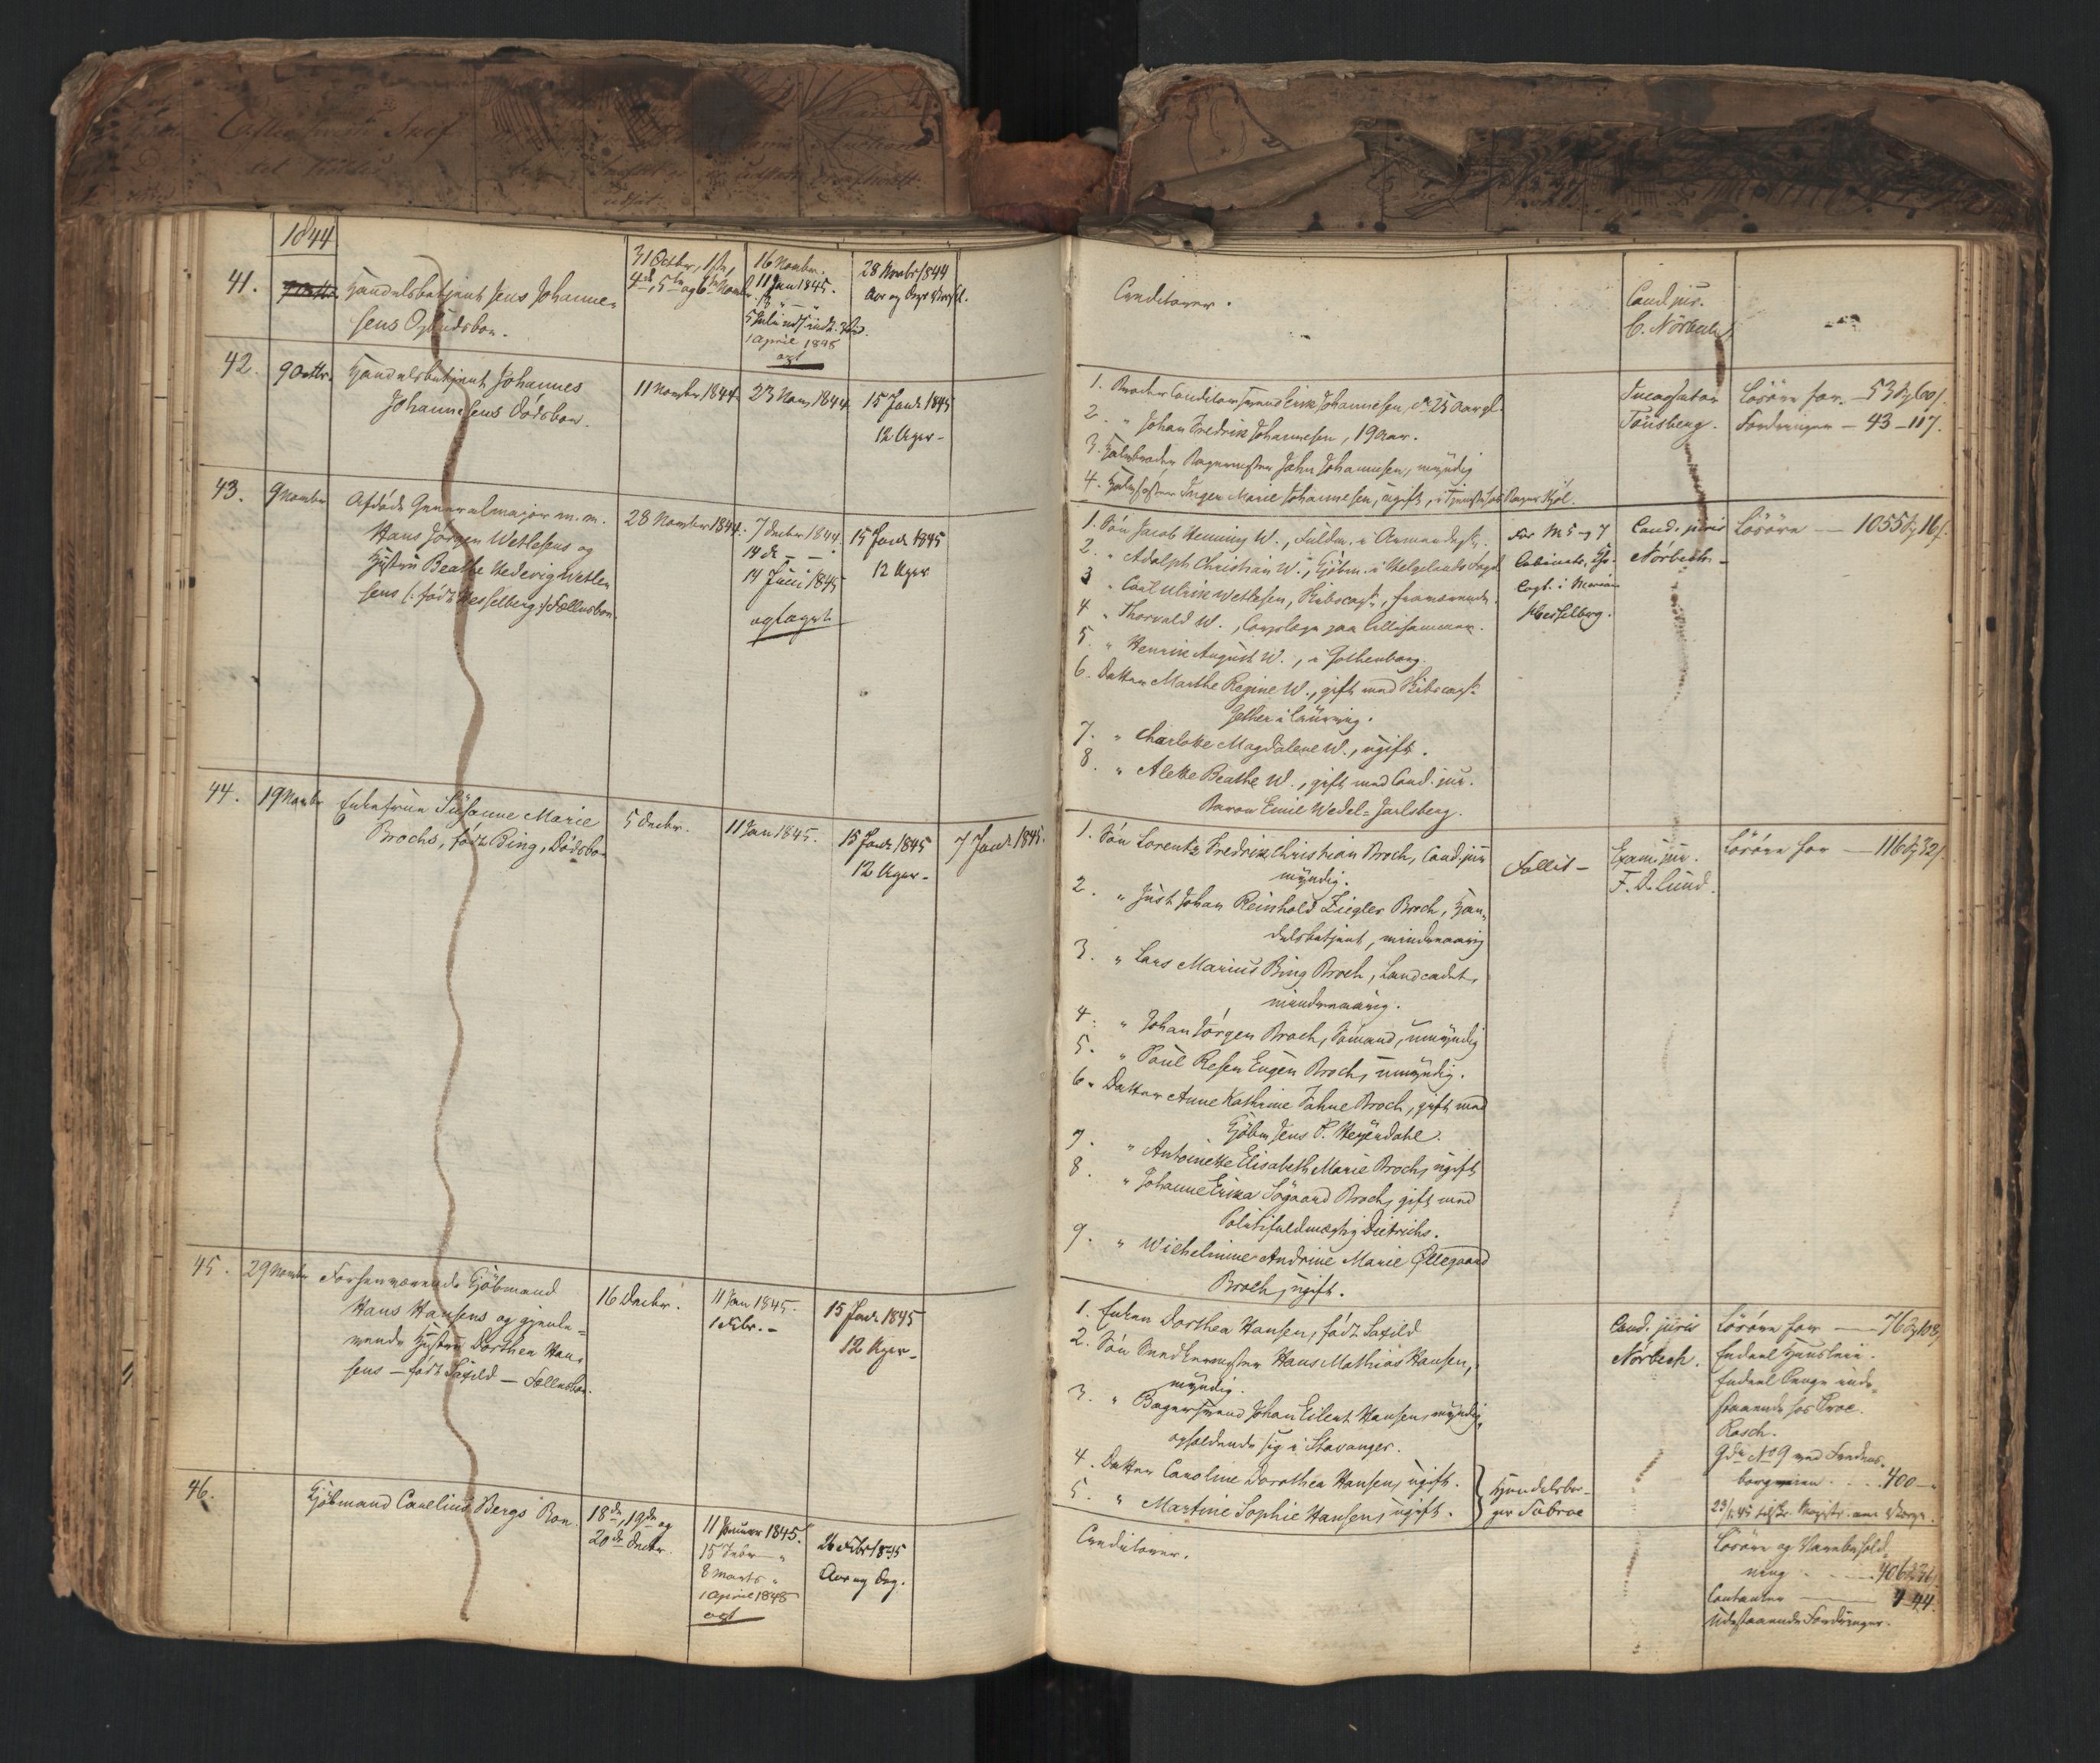 1844
41.
Handelsbetjent Jens Johanne-
sens Opbudsboe.
31 Octbr, 1ste,
4de, 5te og 6te Novembr
16 Novembr.
11 Jan 1845.
1 April 1848
agt
28 Novbr 1844
Aar og Dags Varsel.
Creditorer.
Cand. jur.
C. Nörbech
42.
9 Octbr.
Handelsbetjent Johannes
Johannesens Dödsboe.
11 Novbr 1844
23 Nov 1844
15 Janr 1845
12 Uger -
1. Broder Conditorsvend Erik Johannesen, 25 Aar gl.
2. " Johan Fredrik Johannesen, 19 Aar.
3. Halvbroder Bagermester John Johannesen, myndig
4. Halvsöster Inger Marie Johannesen, ugift, i Tjeneste hos Bager Kjöl.
Incassator
Tönsberg.
Lösöre for - 53 60
Fordringer - 43 - 117.
43.
9 Novembr
Afdöde Generalmajor m. m.
Hans Jörgen Wetlesens og
Hustru Beathe Hedevig Wetle-
sens (: födt Hesselberg :) Fællesboe.
28 November 1844.
7 Decbr 1844
14 de - -
14 Juni 1845
aftaget
15 Janr 1845
12 Uger
1. Sön Jacob Henning W., Fuldm. i Armeedept.
2. " Adolph Christian W., Kjöbm. i Helgelands Fogd
3 " Carl Ulrik Wetlesen, Skibscapt., fraværende.
4. " Thorvald W., Corpslæge paa Lillehammer.
5. " Henrik August W., i Gothenborg.
6. Datter Marthe Regine W., gift med Skibscapt.
Gether i Laurvig.
7. " Charlotte Magdalene W., ugift.
8. " Alette Beathe W., gift med Cand. jur.
Baron Emil Wedel-Jarlsberg.
For No 5 og 7
Capt. i Marinen
Hesselberg.
Cand. juris
Nörbech -
Lösöre - 1055 16
44.
19 Novbr
Enkefrue Susanne Marie
Brochs, födt Bing, Dödsboe
5 Decbr.
11 Jan 1845.
15 Janr 1845
12 Uger -
7 Janr 1845.
1. Sön Lorentz Fredrik Christian Broch, Cand. jur
myndig.
2. " Just Johan Reinhold Ziegler Broch, Han-
delsbetjent, mindreaarig
3. " Lars Marius Bing Broch, Landcadet,
mindreaarig.
4. " Johan Jörgen Broch, Sömand, umyndig
5. " Poul Resen Eugen Broch, umyndig.
6. Datter Anne Kathrine Tahne Broch, gift med
Kjöbm Jens P. Heyerdahl.
7. " Antoinette Elisabeth Marie Broch, ugift
8. " Johanne Erika Sögaard Broch, gift med
Politifuldmægtig Dietrichs.
9. " Wilhelmine Andrine Marie Öllegaard
Broch, ugift.
Fallit -
Exam. jur.
F. D. Lund.
Lösöre for - 116 32
45.
29 Novbr
Forhenværende Kjöbmand
Hans Hansens og gjenle-
vende Hustru Dorthea Han-
sens - födt Saxild - Fællesboe.
16 Decbr.
11 Jan 1845.
1 Febr. -
15 Janr 1845
12 Uger -
1. Enken Dorthea Hansen, födt Saxild
2. Sön Snedkermester Hans Mathias Hansen,
myndig.
3. " Bagersvend Johan Eilert Hansen, myndig,
opholdende sig i Stavanger.
4. Datter Caroline Dorothea Hansen, ugift.
5. " Martine Sophie Hansen, ugift.
Handelsbor-
ger Tobroe
Cand. juris
Nörbech.
Lösöre for - 76 108
Endeel Huusleie.
Endeel Penge inde-
staaende hos Proc.
Rasch.
Gde No 9 ved Fredens-
borgveien . . . 400 -
46.
Kjöbmand Carelius Bergs Boe.
18de, 19de og
20de Decbr.
11 Januar 1845.
15 Febr - "
8 Marts "
1 April 1848
agt
26 Febr 1845
Aar og Dag.
Creditorer.
Lösöre og Varebehold-
ning . . . 406 36
Contanter - 4 - 44.
Udestaaende Fordringer.